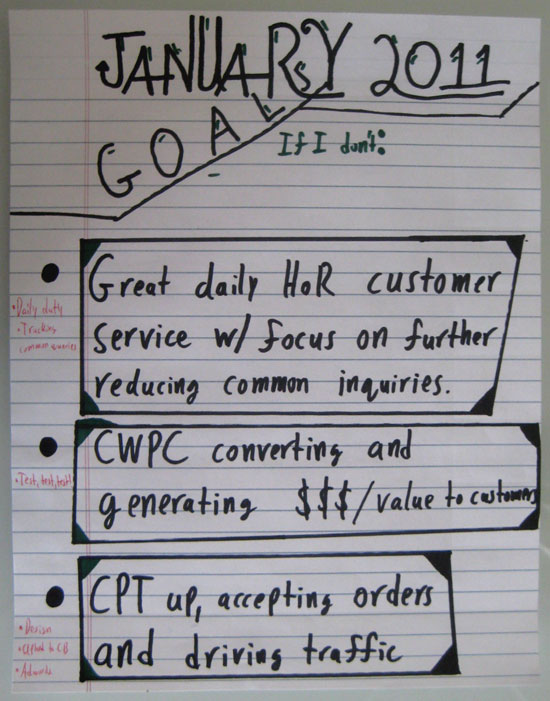 JANUARY 2011
GOALS
If I don't:
Great daily HoR customer
service w/ focus on further
reducing common inquiries.
• Daily duty
• Tracking
common queries
CWPC converting and
generating $$$/value to customers
• Test, test, test!
CPT up, accepting orders
and driving traffic
• Design
• Upload to CB
• Adwords